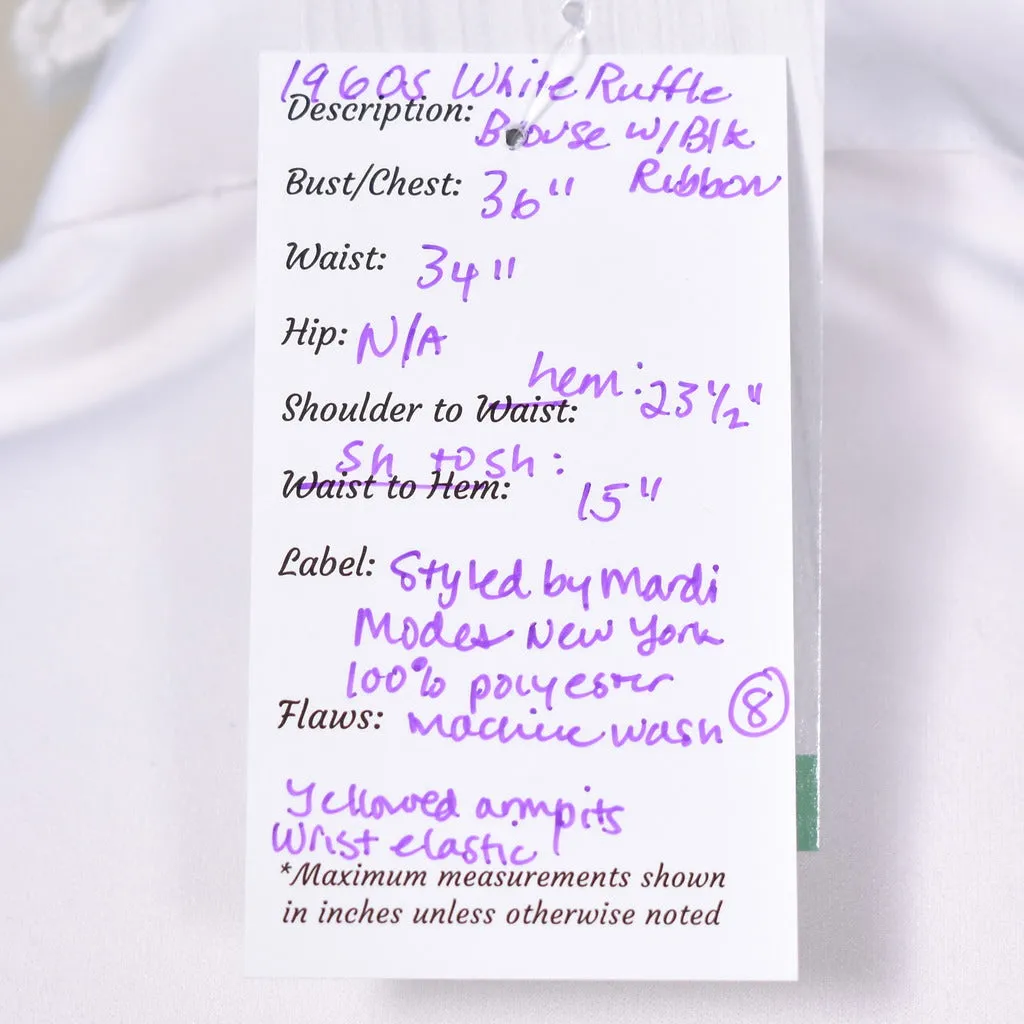 1960s White Ruffle
Description: Blouse w/Blk
Ribbon
Bust/Chest: 36"
Waist: 34"
Hip: N/A
hem: 23 1/2"
Shoulder to Waist:
Sh to sh:
Waist to Hem: 15"
Label: Styled by Mardi
Modes New York
100% polyester
Flaws: machine wash 8
Yellowed armpits
Wrist elastic
*Maximum measurements shown
in inches unless otherwise noted